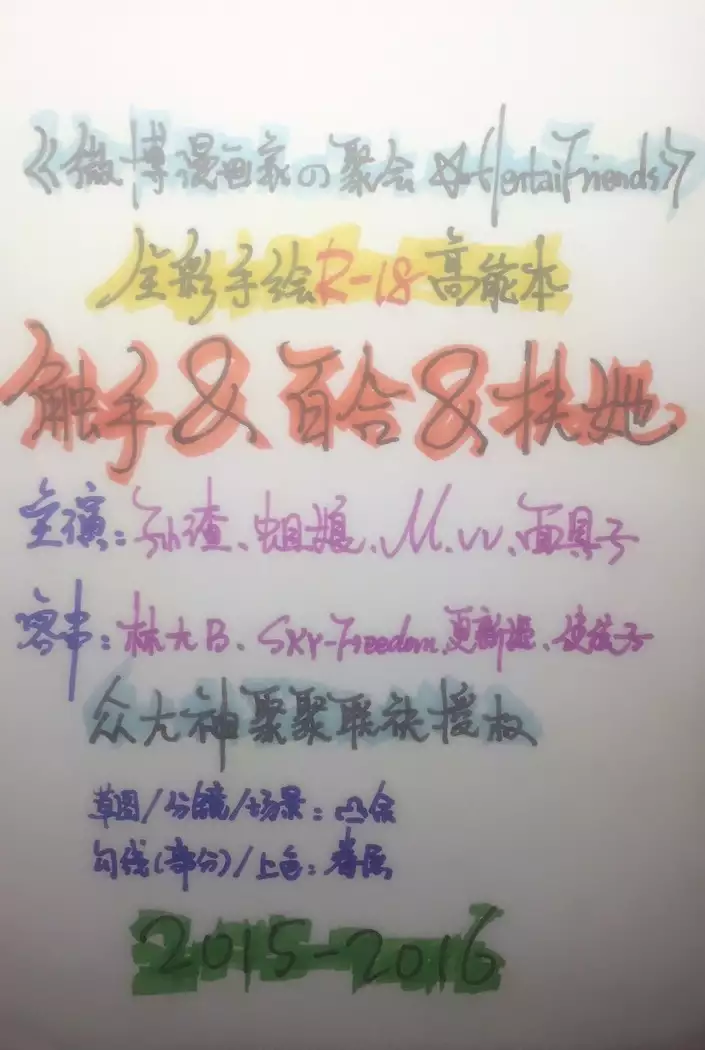 《微博漫画家の聚会☆HentaiFriends》
全彩手绘R-18高能本
触手&百合&扶她
主演:孙渣、蛆娘、M.w、面具子
客串:林大B、Sky-Freedom、更新姬、
众大神聚聚联袂授权
草图/分镜/场景:凸余
勾线(部分)/上色:
2015-2016